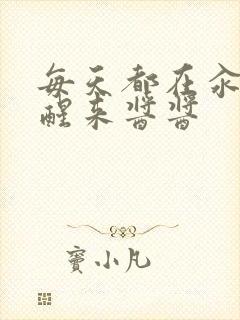 每天都在汆
醒来酱酱
窦小凡